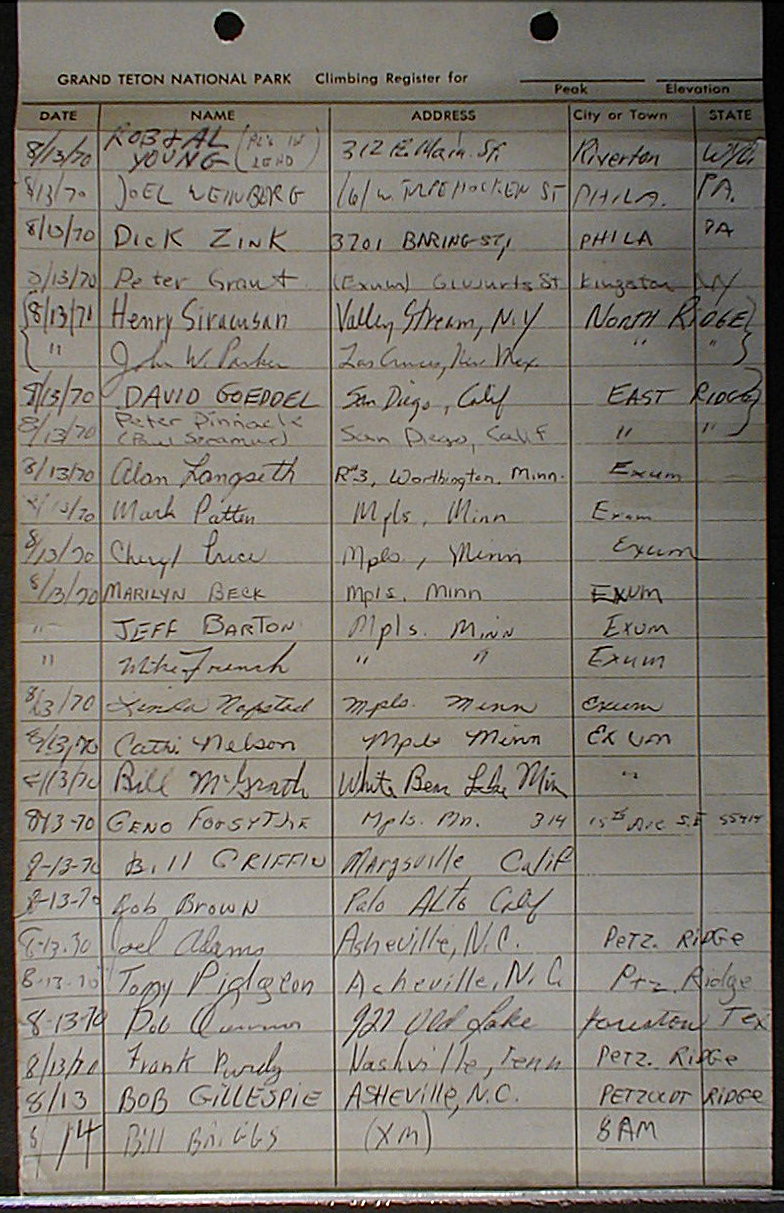 GRAND TETON NATIONAL PARK Climbing Register for
Peak Elevation
DATE NAME ADDRESS City or Town STATE
8/13/70 ROB & AL YOUNG 312 E. Main St. Riverton WYO
8/13/70 JOEL 161 W. ST PHILA. PA.
8/13/70 DICK ZINK 3701 BARING ST, PHILA PA
8/13/70 Peter Grant (Exum) St Kingston NY
8/13/71 Henry Valley Stream, N.Y NORTH RIDGE
" John W. Parker Las Cruces, New Mex. " "
8/13/70 DAVID GOEDDEL San Diego, Calif EAST RIDGE
8/13/70 Peter Pinnacle San Diego, Calif " "
8/13/70 Alan Langseth R#3, Worthington, Minn. Exum
8/13/70 Mark Patten Mpls, Minn Exum
8/13/70 Cheryl Price Mpls., Minn Exum
8/13/70 MARILYN BECK Mpls. Minn EXUM
" JEFF BARTON Mpls. MINN EXUM
" Mike French " " Exum
8/13/70 Linda Mpls. Minn Exum
8/13/70 Cathi Nelson Mpls Minn Exum
8/13/70 Bill McGrath White Bear Lake Min "
8-13-70 GENO FORSYTHE Mpls. Mn. 314 15th Ave S.E 55414
8-13-70 Bill GRIFFIN Marysville Calif
8-13-70 Bob BROWN Palo ALTO Calif
8-13-70 Joel Adams Asheville, N.C. PETZ. RIDGE
8-13-70 Tony Pidgeon Asheville, N.C Ptz. Ridge
8-13-70 Bob 927 Old Lake Houston Tex
8/13/70 Frank Purdy Nashville, Tenn PETZ. RIDGE
8/13 BOB GILLESPIE ASHEVILLE, N.C. PETZOLDT RIDGE
8/14 Bill BRIGGS (XM) 8AM